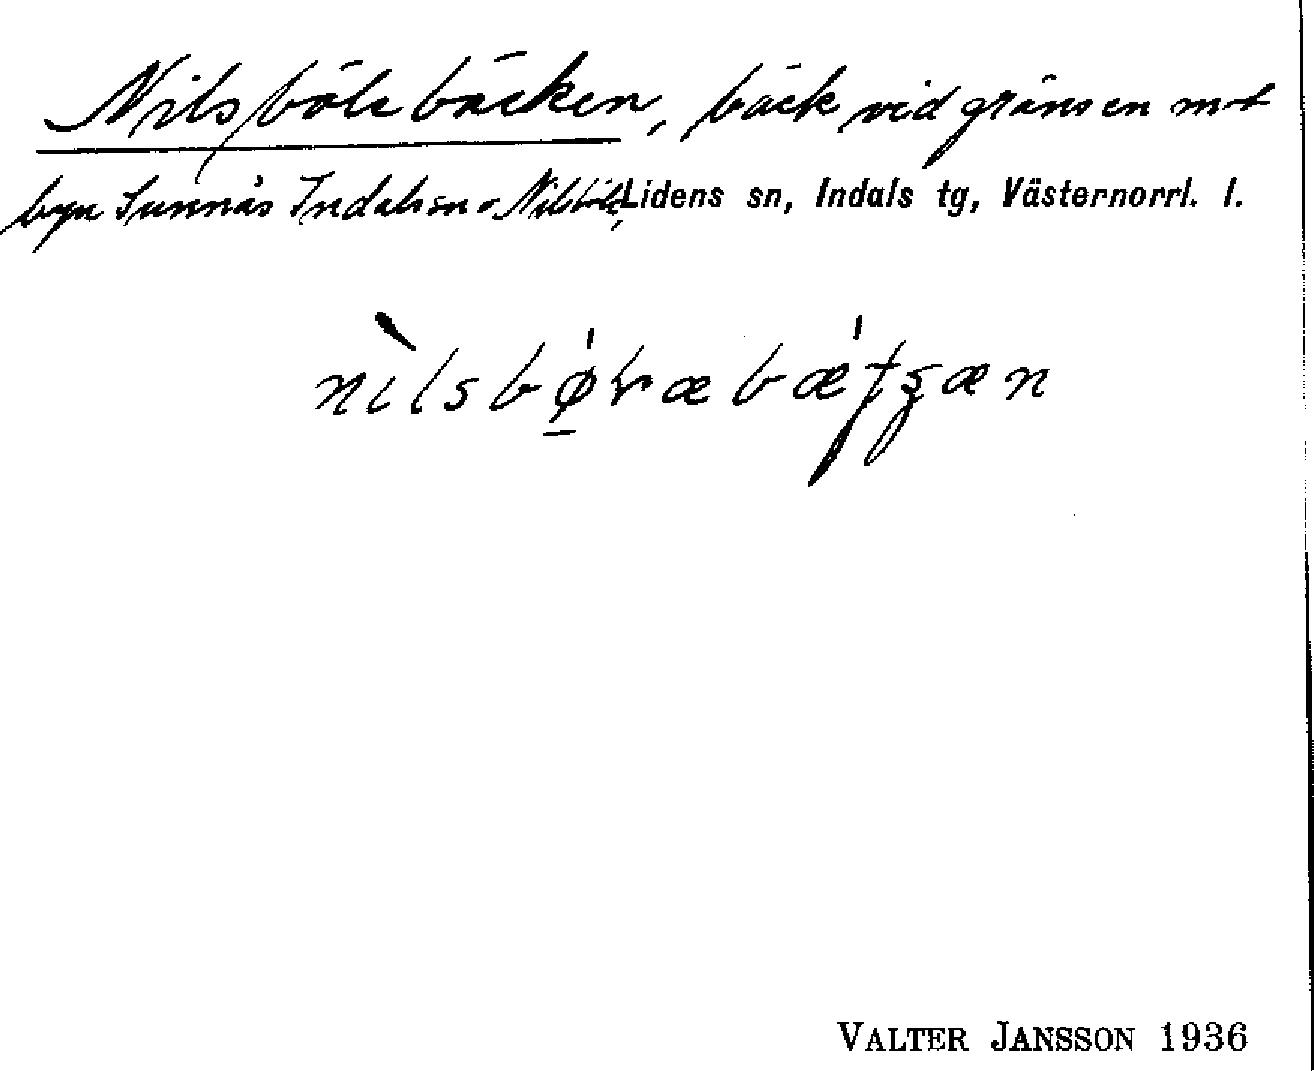 Nilsbölebäcken, bäck vid gränsen mot
byn Sunnås Indals sn o. Nilsböle, Lidens sn, Indals tg, Västernorrl. l.
VALTER JANSSON 1936